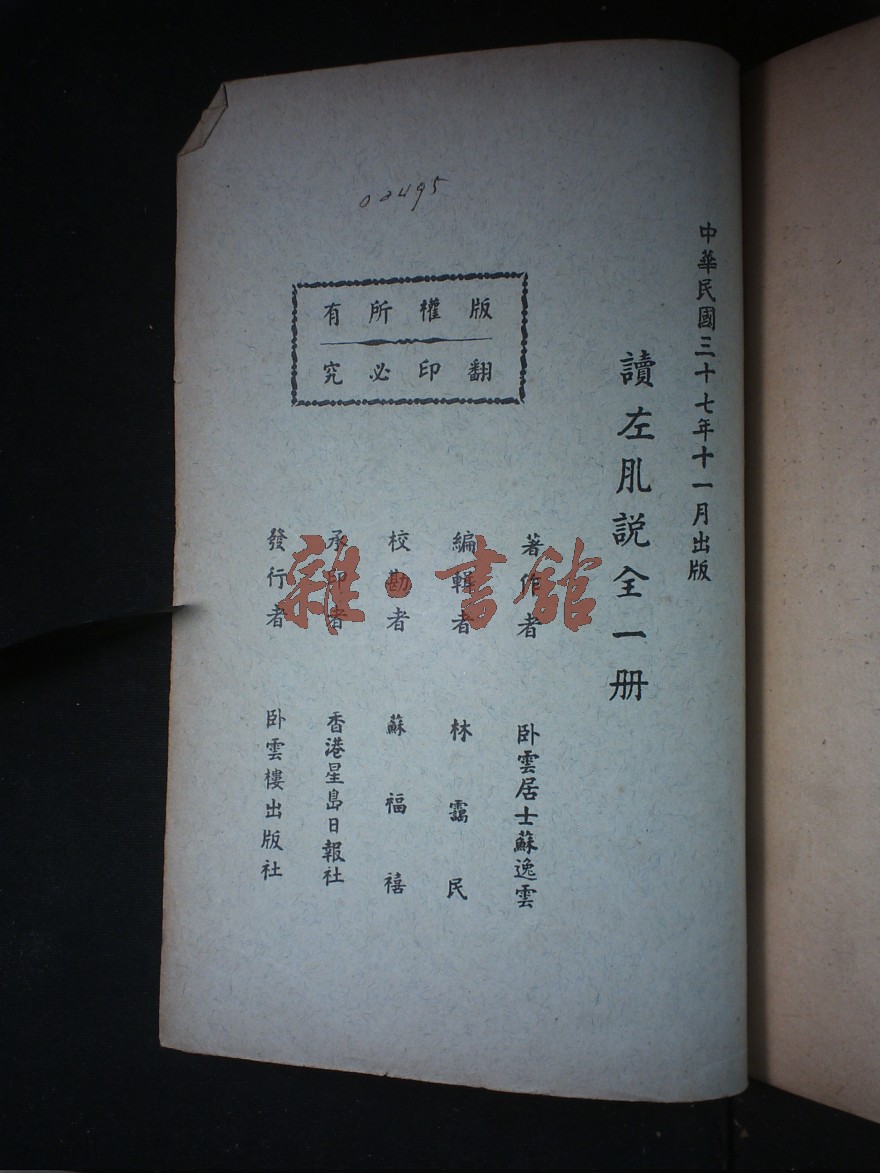 02495
中華民國三十七年十一月出版
讀左肊説全一册
版權所有
翻印必究
著作者 卧雲居士蘇逸雲
編輯者 林靄民
校勘者 蘇福禧
承印者 香港星島日報社
發行者 卧雲樓出版社
雜·書館